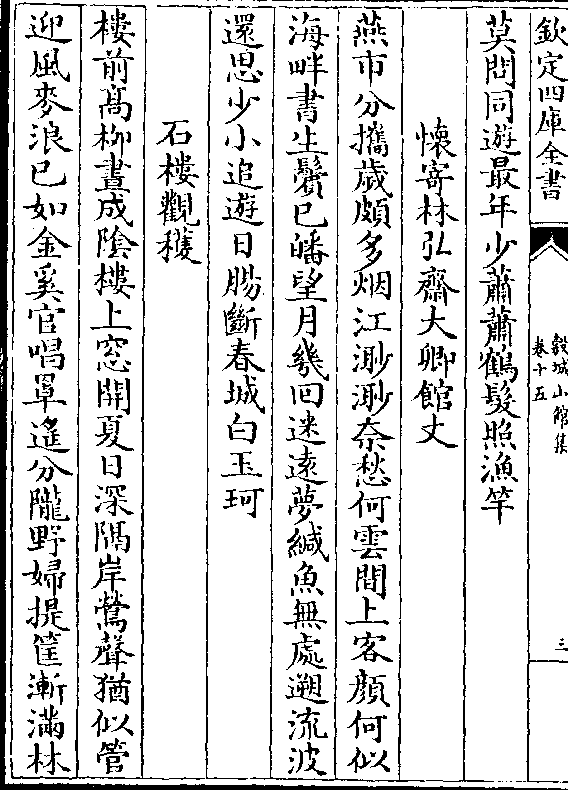 欽定四庫全書
榖城山館集
卷十五
三
莫問同遊最年少蕭蕭鶴髮照漁竿
懷寄林弘齋大卿館丈
燕市分攜歲頗多烟江渺渺奈愁何雲間上客顔何似
海畔書生鬢已皤望月幾回迷遠夢緘魚無處遡流波
還思少小追遊日腸斷春城白玉珂
石樓觀穫
樓前髙柳晝成陰樓上窓開夏日深隔岸鶯聲猶似管
迎風麥浪已如金奚官唱罩遙分隴野婦提筐漸滿林